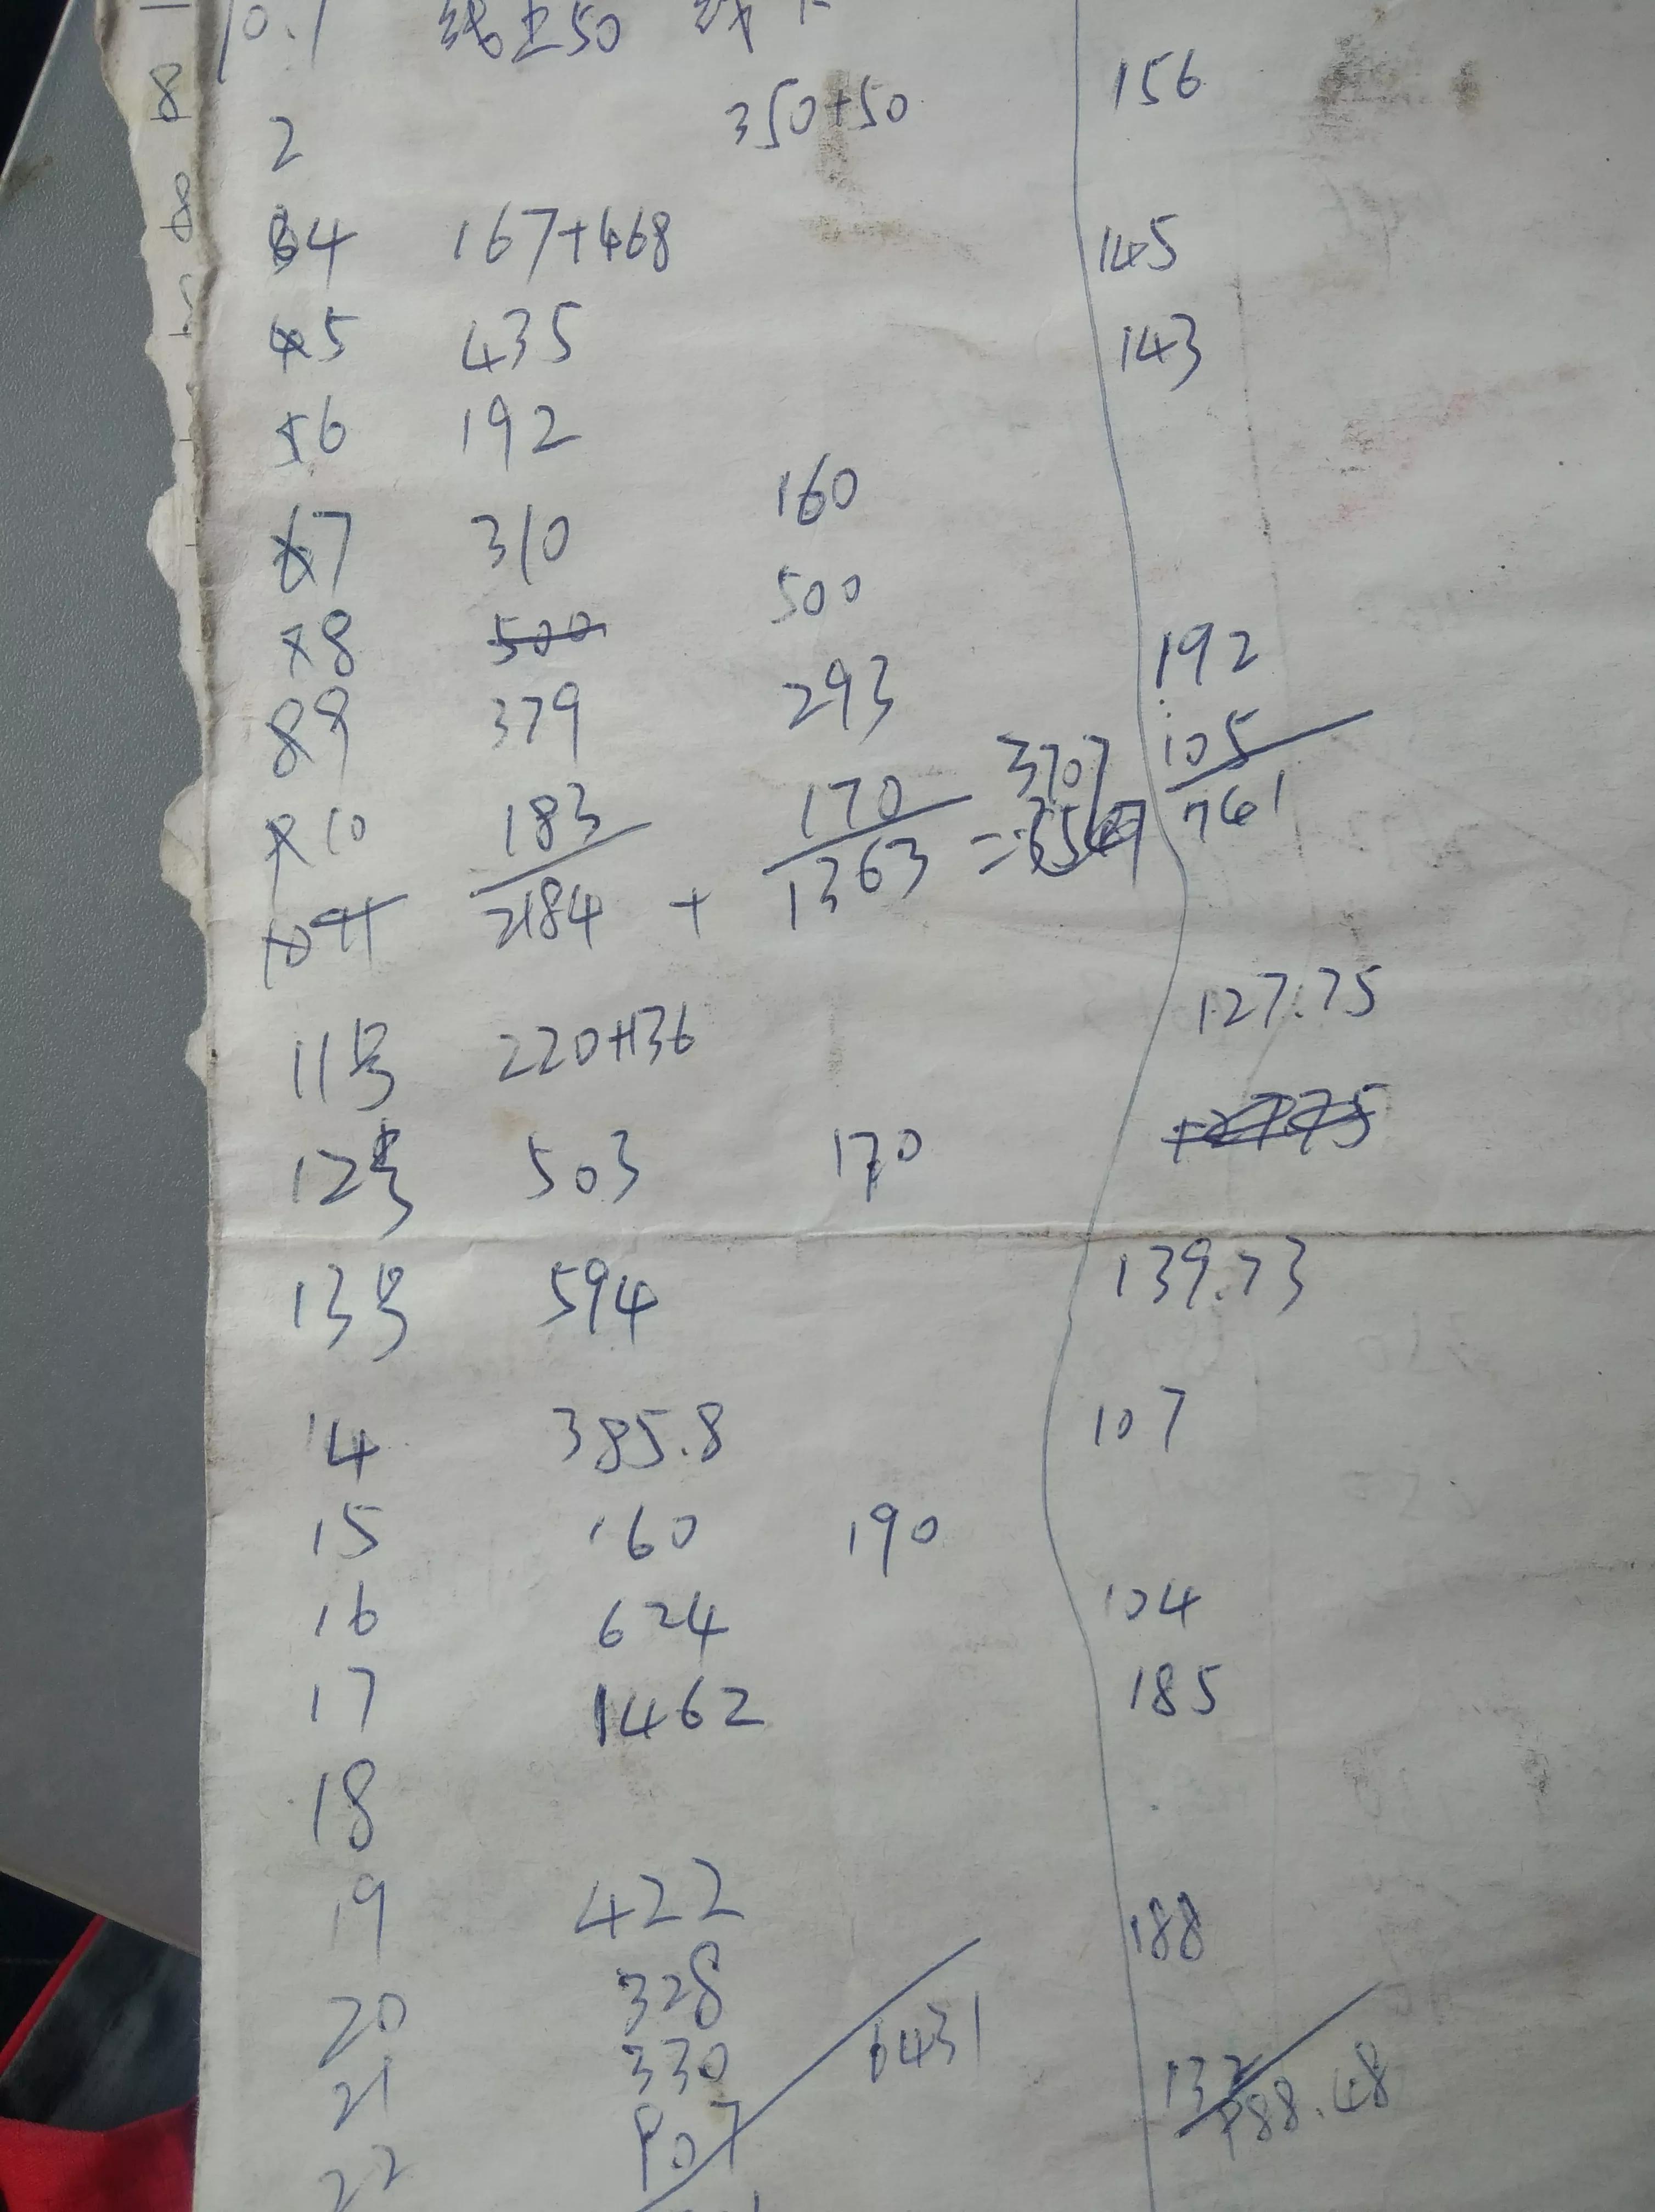 10.1 线上50 线下
2 350+50 156
4 167+468 145
5 435 143
6 192
7 310 160
8 500 500
9 379 293 192
10 183 170 3707 105
2184 + 1363 = 761
11号 220+136 127.75
12号 503 170
13号 594 139.73
14 385.8 107
15 160 190
16 624 104
17 1462 185
18
19 422 188
20 328
21 330 6431 132
22 907 988.48